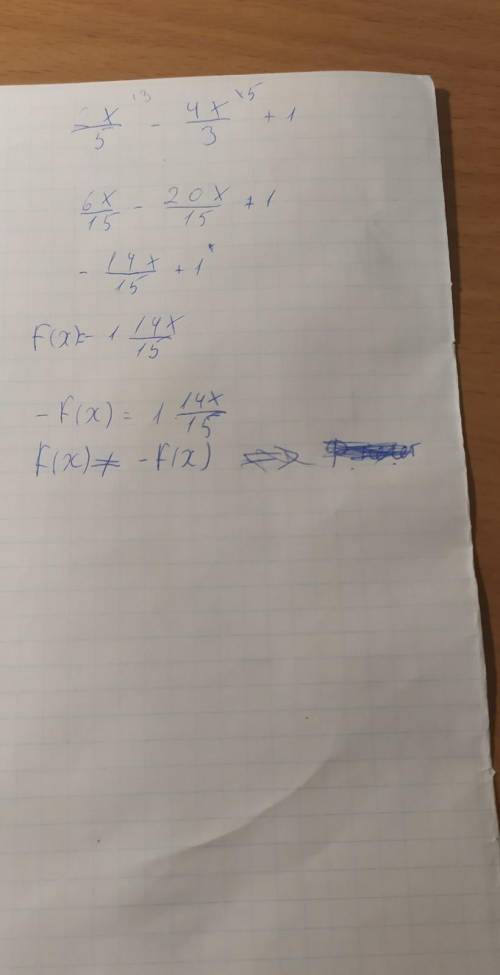 x/5 ¹³ - 4x/3 ˣ⁵ + 1
6x/15 - 20x/15 + 1
- 14x/15 + 1
F(x)= 1 14x/15
-F(x) = 1 14x/15
F(x) ≠ -F(x)